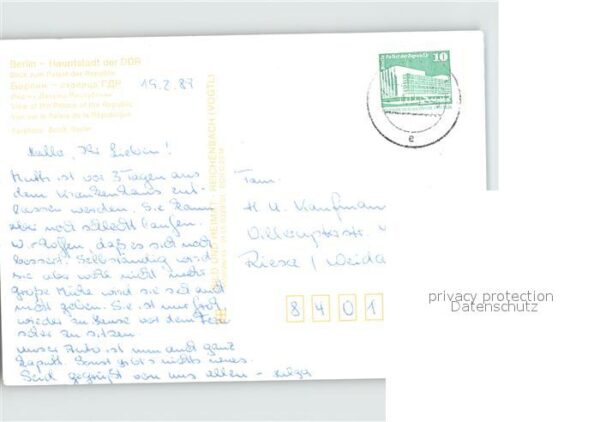 Berlin – Hauptstadt der DDR
Blick zum Palast der Republik
Берлин – столица ГДР
View of the Palace of the Republic
Vue sur le Palais de la République
15.2.87
Palast der Republik
10
e
Hallo, Ihr Lieben!
Mutti ist vor 3 Tagen aus
dem Krankenhaus ent-
lassen worden. Sie kann
aber noch schlecht laufen.
Wir hoffen, daß es sich noch
bessert. Selbständig wird
sie aber wohl nicht mehr
große Mühe wird sie sich
nicht geben. Sie ist nur froh
wieder zu Hause vor dem Fern
seher zu sitzen.
Unser Auto ist nun auch ganz
kaputt. Sonst gibt's nichts neues.
Seid gegrüßt von uns allen –
REICHENBACH (VOGTL)
Fam.
H. U. Kaufman
Riesa / Weida
8401
privacy protection
Datenschutz